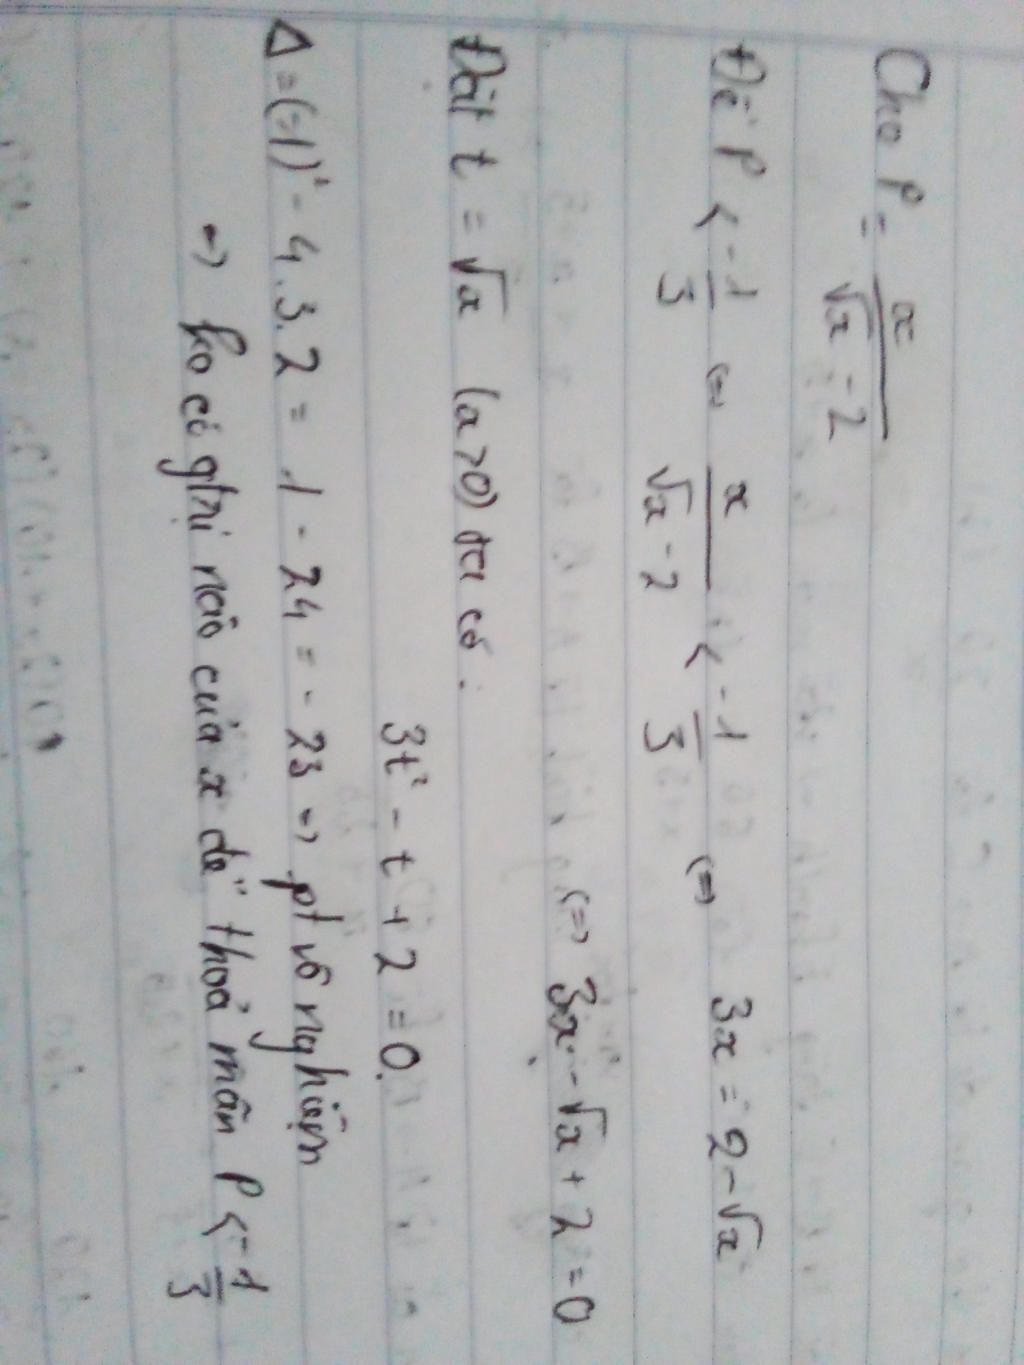 Cho P = x / (√x - 2)
Để P < -1/3 <=> x / (√x - 2) < -1/3 <=> 3x = 2 - √x
<=> 3x - √x + 2 = 0
Đặt t = √x (x > 0) ta có :
3t² - t + 2 = 0.
Δ = (-1)² - 4.3.2 = 1 - 24 = - 23 => pt vô nghiệm
=> ko có gtrị nào của x để thoả mãn P < -1/3